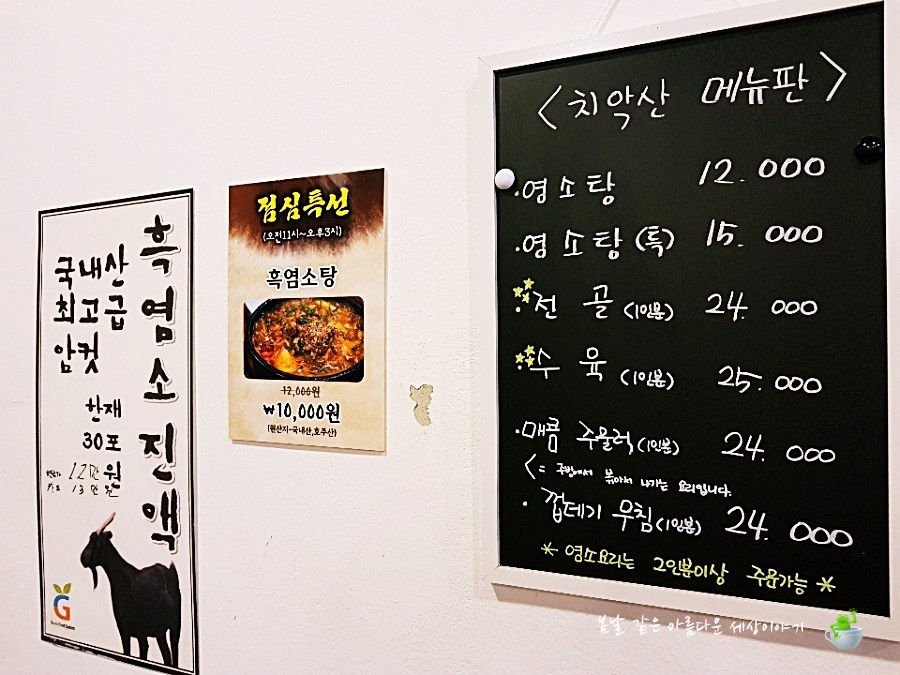 흑염소진액
국내산
최고급
암컷
한재
30포
12만원
카드 13만원
G
점심특선
(오전11시~오후3시)
흑염소탕
12,000원
₩10,000원
(원산지-국내산,호주산)
<치악산 메뉴판>
·염소탕 12.000
·염소탕(특) 15.000
·전골(1인분) 24.000
·수육(1인분) 25.000
·매콤 주물럭(1인분) 24.000
<= 주방에서 볶아서 나가는 요리입니다.
·껍데기 무침(1인분) 24.000
*염소요리는 2인분이상 주문가능*
봄날 같은 아름다운 세상이야기